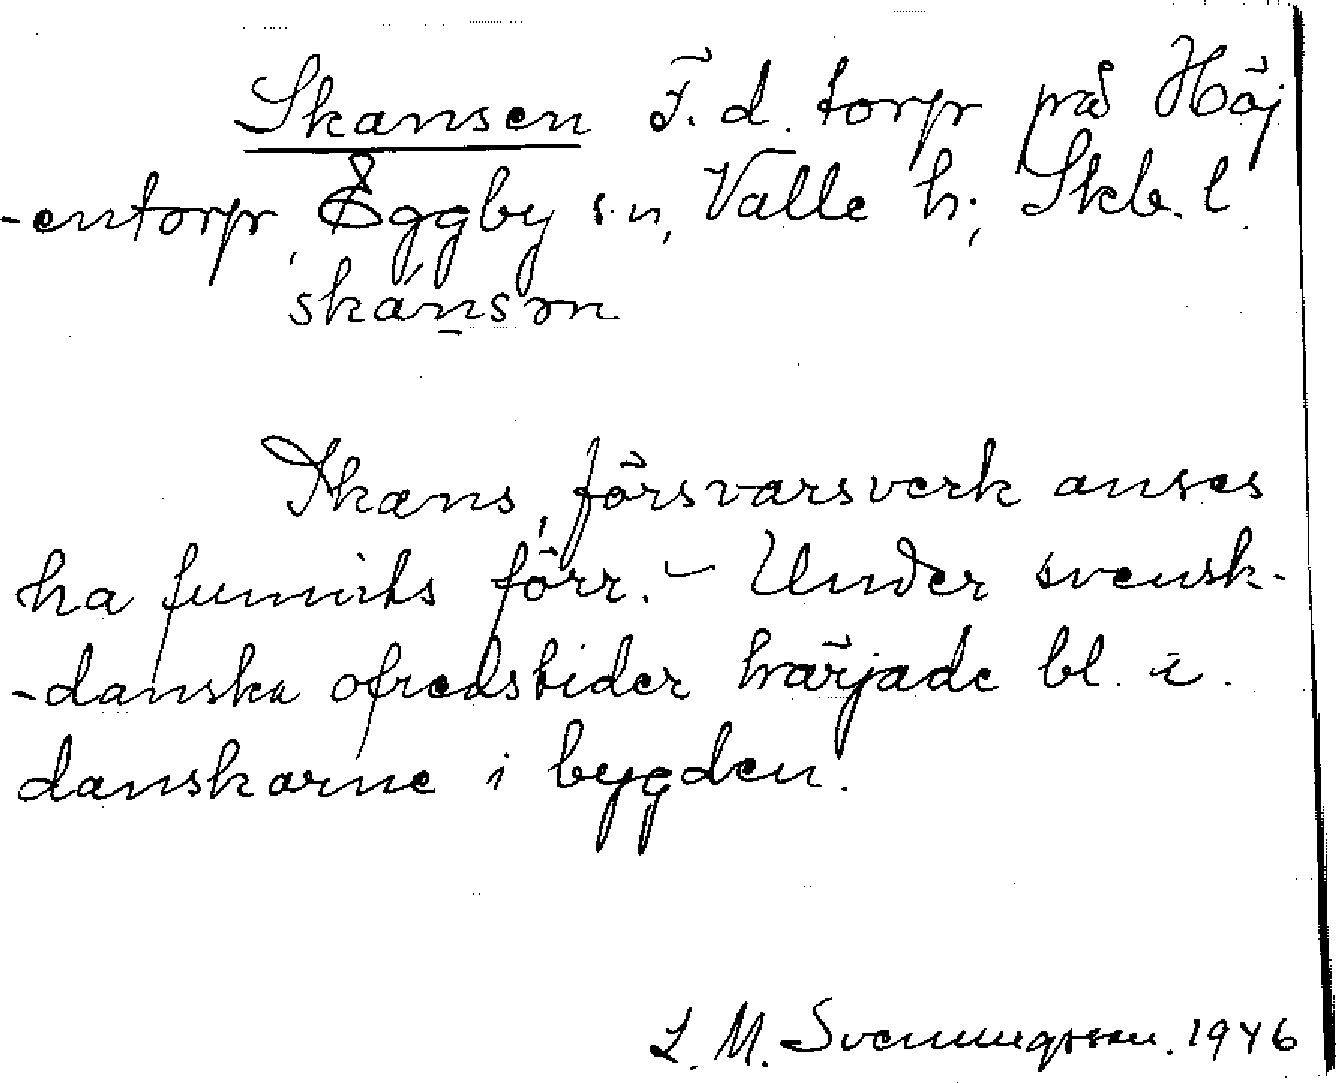 Skansen F. d. torp på Höj
-entorp, Eggby sn, Valle h; Skb. l.
skánsən
Skans, försvarsverk anses
ha funnits förr. – Under svensk-
-danska ofredstider härjade bl. a.
danskarne i bygden.
L. M. Svenningsson. 1946